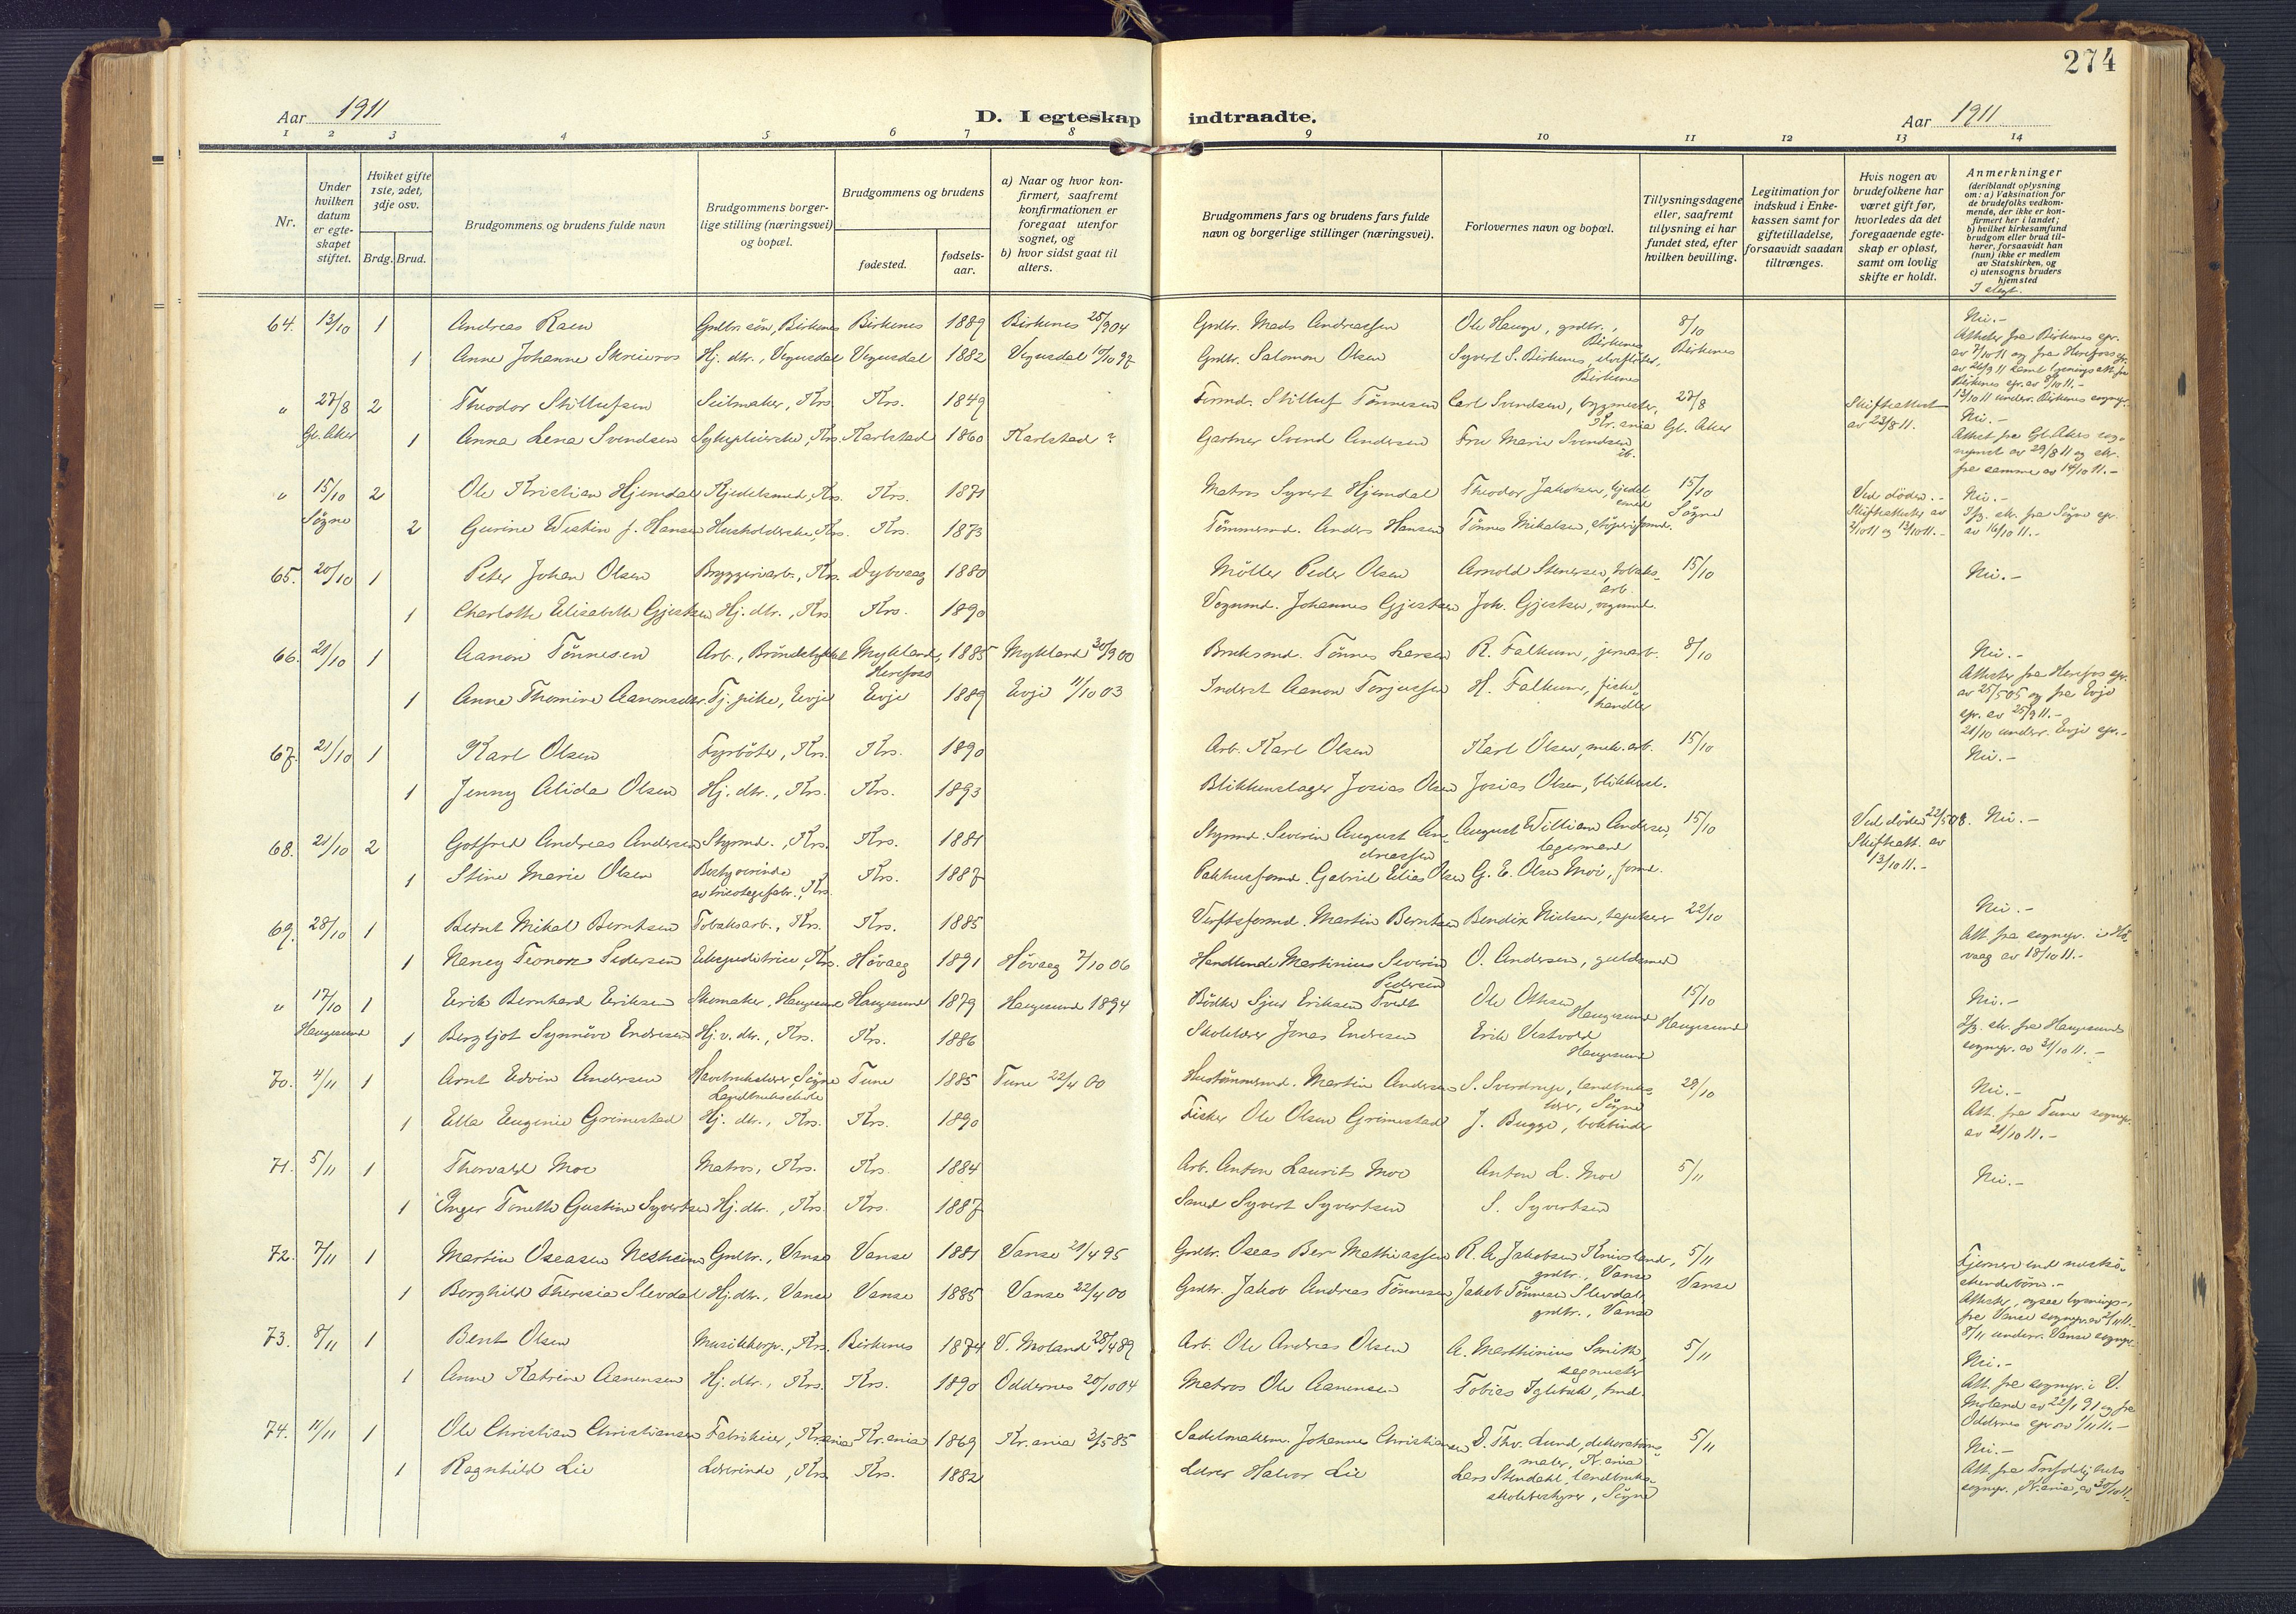 274
Aar 1911
D. I egteskap indtraadte.
Aar 1911
1 2 3 4 5 6 7 8 9 10 11 12 13 14
Nr.
Under hvilken datum er egteskapet stiftet.
Hviket gifte 1ste, 2det, 3dje osv.
Brdg. Brud.
Brudgommens og brudens fulde navn
Brudgommens borgerlige stilling (næringsvei) og bopæl.
Brudgommens og brudens
fødested.
fødselsaar.
a) Naar og hvor konfirmert, saafremt konfirmationen er foregaat utenfor sognet, og
b) hvor sidst gaat til alters.
Brudgommens fars og brudens fars fulde navn og borgerlige stillinger (næringsvei).
Forlovernes navn og bopæl.
Tillysningsdagene eller, saafremt tillysning ei har fundet sted, efter hvilken bevilling.
Legitimation for indskud i Enkekassen samt for giftetilladelse, forsaavidt saadan tiltrænges.
Hvis nogen av brudefolkene har været gift før, hvorledes da det foregaaende egteskap er opløst, samt om lovlig skifte er holdt.
Anmerkninger
(deriblandt oplysning om: a) Vaksination for de brudefolks vedkommende, der ikke er konfirmert her i landet; b) hvilket kirkesamfund brudgom eller brud tilhører, forsaavidt han (hun) ikke er medlem av Statskirken, og c) utensogns bruders hjemsted
I slegt.
64. 13/10 1 Andreas Raen Grdbr. søn, Birkenes Birkenes 1889 Birkenes 25/9 04 Grdbr. Mads Andreassen Ole Hauge, grdbr., Birkenes 8/10 Birkenes Nei.-
1 Anne Johanne Skreiros Hj. dtr., Vegusdal Vegusdal 1882 Vegusdal 10/10 97 Grdbr. Salomon Olsen Syvert S. Birkenes, Birkenes
Attester fra Birkenes spr. av 7/10 11 og fra Herefoss spr. av 26/9 11 samt lysningsatt. fra Birkenes spr. av 8/10 11.-
13/10 11 underr. Birkenes sognepr.
" 27/8 Gl. Aker 2 Theodor Stillufsen Seilmaker, Krs. Krs. 1849 Tirmd. Stilluf Tønnesen Carl Svendsen, bygmester, Kr.ania 27/8 Gl. Aker Skifteattest av 23/8 11. Nei.-
1 Anna Lena Svendsen Sykepleierske, Krs. Karlstad 1860 Karlstad ? Gartner Svend Andersen Fru Marie Svendsen ib.
Attest fra Gl. Akers av 29/8 11 og fra samme av 14/10 11.-
" 15/10 Søgne 2 Ole Kristian Hjemdal Kjedelsmed, Krs. Krs. 1871 Matros Syvert Hjemdal Theodor Jakobsen, kjedelsmed 15/10 Søgne Ved døden.- Skifteattester av 2/10 11 og 13/10 11.- Nei.-
2 Gurine Westin f. Hansen Husholderske, Krs. Krs. 1873 Tømmermd. Anders Hansen Tønnes Mikalsen, støperiformd.
Ifg. skr. fra Søgne spr. av 16/10 11.-
65. 20/10 1 Peter Johan Olsen Bryggeriarb., Krs. Dybvaag 1880 Møller Peder Olsen Arnold Stenersen, tobaksarb. 15/10 Nei.-
1 Charlotte Elisabeth Gjertsen Hj. dtr., Krs. Krs. 1890 Vognmd. Johannes Gjertsen Joh. Gjertsen, vognmd.
66. 21/10 1 Aanon Tønnesen Arb., Mykland, Herefoss 1885 Mykland 30/9 00 Bruksmd. Tønnes Larsen R. Falkum, jernarb. 8/10 Nei.-
1 Anne Thomine Aanonsdtr. Tj. pike, Evje Evje 1889 Evje 11/10 03 Inderst Aanon Torjussen H. Falkum, fiskehandler
Attester fra Herefos spr. av 25/5 05 og fra Evje spr. av 25/9 11.-
21/10 underr. Evje spr.-
67. 21/10 1 Karl Olsen Fyrbøter, Krs. Krs. 1890 Arb. Karl Olsen Karl Olsen, mek. arb. 15/10 Nei.-
1 Jenny Alida Olsen Hj. dtr., Krs. Krs. 1893 Blikkenslager Josias Olsen Josias Olsen, blikkensl.
68. 21/10 2 Gotfred Andreas Andersen Styrmd., Krs. Krs. 1881 Styrmd. Severin August Andreassen August William Andersen, lagermand 15/10 Ved døden 22/5 08. Skifteatt. av 13/10 11.- Nei.-
1 Stine Marie Olsen Bestyrerinde av tricotagefabr., Krs. Krs. 1887 Pakhusformd. Gabriel Elias Olsen G. E. Olsen Moi, formd.
69. 28/10 1 Bernt Mikal Berntsen Tobaksarb., Krs. Krs. 1885 Verftsformd. Martin Berntsen Bendix Nielsen, tapetserer 22/10 Nei.-
1 Nancy Teonore Pedersen Ekspeditrice, Krs. Høvaag 1891 Høvaag 7/10 06 Handlende Martinius Severin Pedersen O. Andersen, guldsmed
Att. fra sognepr. i Høvaag av 18/10 11.-
" 17/10 Haugesund 1 Eirik Bernhard Eriksen Skomaker, Haugesund Haugesund 1879 Haugesund 1894 Bødker Sjur Eriksen Tvedt Ole Ottesen Haugesund 15/10 Haugesund Nei.-
1 Bergljot Synnøve Endresen Hj.v. dtr., Krs. Krs. 1886 Skolelærer Jonas Endresen Erik Vestvold Haugesund
Ifg. skr. fra Haugesunds sognepr. av 31/10 11.-
70. 4/11 1 Arnt Edvin Andersen Havebrukslærer, Søgne Landbruksskole Tune 1885 Tune 22/4 00 Hustømmermd. Martin Andersen S. Sverdrup, landbrukslærer, Søgne 29/10 Nei.-
1 Ella Eugenie Grimestad Hj. dtr., Krs. Krs. 1890 Fisker Ole Olsen Grimestad J. Bugge, bokbinder
Att. fra Tune sognepr. av 21/10 11.-
71. 5/11 1 Thorvald Moe Matros, Krs. Krs. 1884 Arb. Anton Laurits Moe Anton L. Moe 5/11 Nei.-
1 Inger Tonette Gustine Syvertsen Hj. dtr., Krs. Krs. 1887 Smed Syvert Syvertsen S. Syvertsen
72. 7/11 1 Martin Oseasen Nesheim Grdbr., Vanse Vanse 1881 Vanse 21/4 95 Grdbr. Oseas Ber Mathiassen R. A. Jakobsen Knivsland, grdbr., Vanse 5/11 Vanse Fjernere end næstsøskendebørn.-
1 Borghild Theresia Slevdal Hj. dtr., Vanse Vanse 1885 Vanse 22/4 00 Grdbr. Jakob Andreas Tønnesen Jakob Tønnesen Slevdal, grdbr., Vanse
Attester, ogsaa lysnings-, fra Vanse sognepr. av 6/11 11.-
8/11 underr. Vanse sognepr.
73. 8/11 1 Bent Olsen Musikkorp., Krs. Birkenes 1874 V. Moland 28/4 89 Arb. Ole Andreas Olsen A. Marthinius Smith, segmester 5/11 Nei.-
1 Anne Katrine Aanensen Hj. dtr., Krs. Krs. 1890 Oddernes 20/10 04 Matros Ole Aanensen Tobias Iglebæk, tmd.
Att. fra sognepr. i V. Moland av 22/1 91 og fra Oddernes spr. av 1/11 11.-
74. 11/11 1 Ole Christian Christiansen Fabrikeier, Kr.ania Kr.ania 1869 Kr.ania 3/5 85 Sadelmakerm. Johannes Christiansen D. Thv. Lund, dekorationsmaler, Kr.ania 5/11 Nei.-
1 Ragnhild Lie Lærerinde, Krs. Krs. 1882 Lærer Halvor Lie Lars Stendahl, landbruksskolebestyrer, Søgne
Att. fra Trefoldigheds sognepr., Kr.ania, av 30/10 11.-